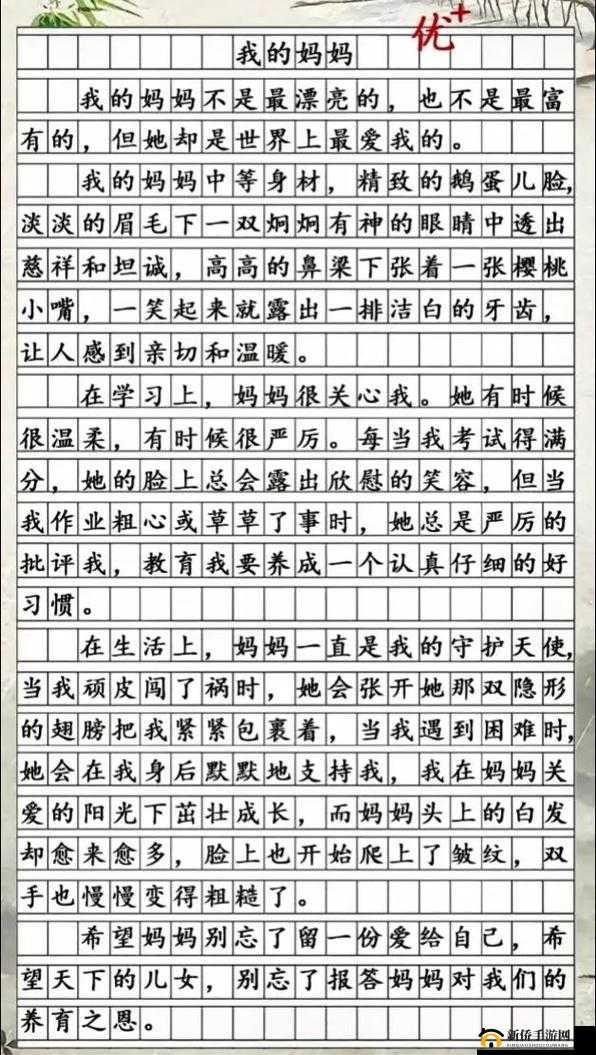 优+
我的妈妈
我的妈妈不是最漂亮的，也不是最富
有的，但她却是世界上最爱我的。
我的妈妈中等身材，精致的鹅蛋儿脸，
淡淡的眉毛下一双炯炯有神的眼睛中透出
慈祥和坦诚，高高的鼻梁下张着一张樱桃
小嘴，一笑起来就露出一排洁白的牙齿，
让人感到亲切和温暖。
在学习上，妈妈很关心我。她有时候
很温柔，有时候很严厉。每当我考试得满
分，她的脸上总会露出欣慰的笑容，但当
我作业粗心或草草了事时，她总是严厉的
批评我，教育我要养成一个认真仔细的好
习惯。
在生活上，妈妈一直是我的守护天使，
当我顽皮闯了祸时，她会张开她那双隐形
的翅膀把我紧紧包裹着，当我遇到困难时，
她会在我身后默默地支持我，我在妈妈关
爱的阳光下茁壮成长，而妈妈头上的白发
却愈来愈多，脸上也开始爬上了皱纹，双
手也慢慢变得粗糙了。
希望妈妈别忘了留一份爱给自己，希
望天下的儿女，别忘了报答妈妈对我们的
养育之恩。
新侨手游网